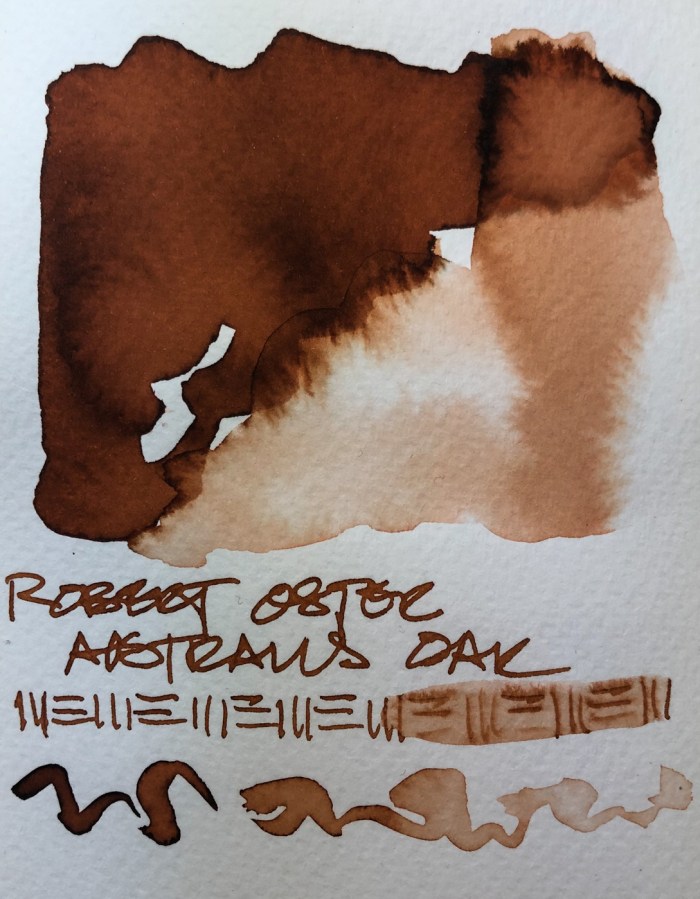 ROBERT OSTER
AUSTRALIS OAK